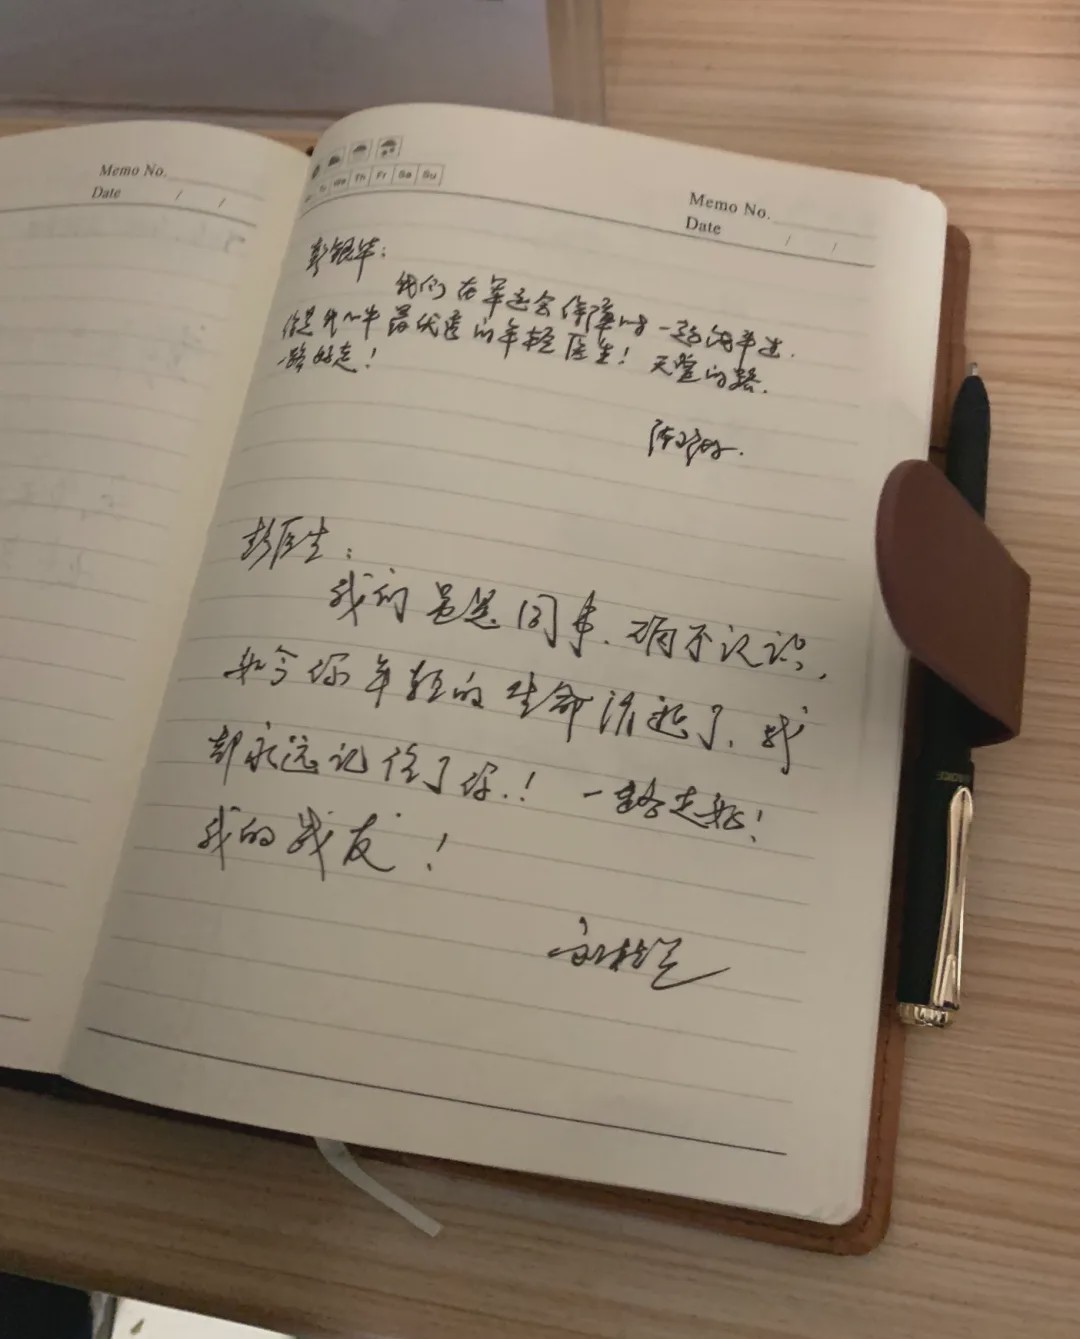 Memo No.
Date / /
We Th Fr Sa Su
Memo No.
Date / /
彭银华:
我们在军运会保障时一起
你是我心中最优秀的年轻医生! 天堂的路.
一路好走!
彭医生:
我们虽是同事.确不认识,
如今你年轻的生命流逝了.我
却永远记住了你.! 一路走好!
我的战友!